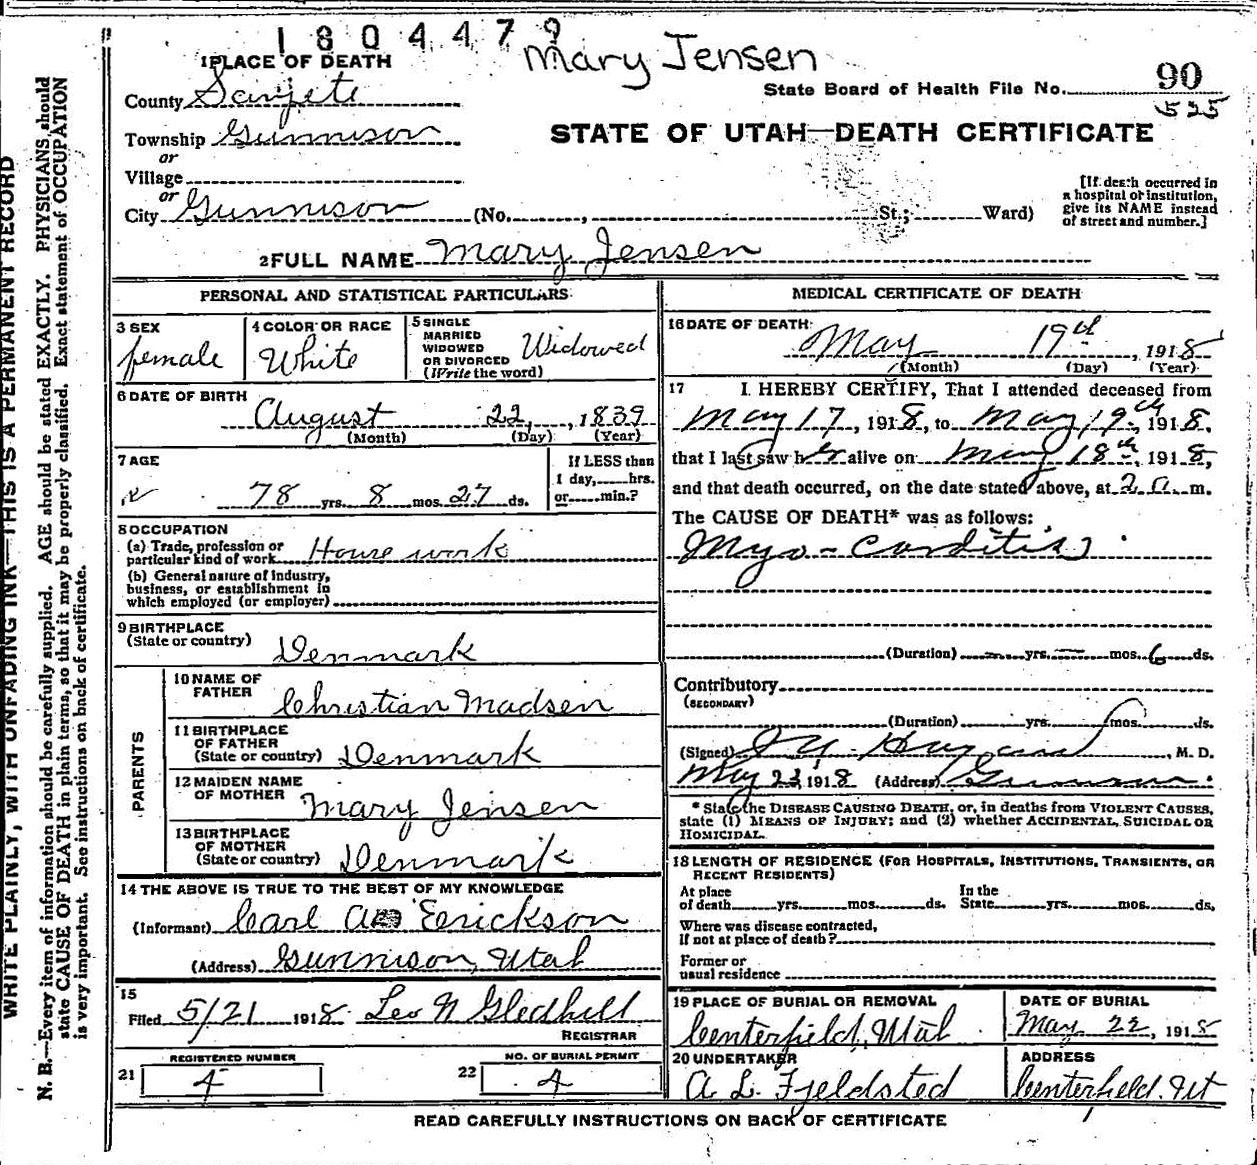 1 8 0 4 4 7 9
Mary Jensen
1 PLACE OF DEATH
State Board of Health File No. 90
525
County Sanpete
Township Gunnison
STATE OF UTAH—DEATH CERTIFICATE
or
Village
or
City Gunnison (No. , St.; Ward)
[If death occurred in
a hospital or institution,
give its NAME instead
of street and number.]
2 FULL NAME Mary Jensen
PERSONAL AND STATISTICAL PARTICULARS
3 SEX
female
4 COLOR OR RACE
White
5 SINGLE
MARRIED
WIDOWED
OR DIVORCED
(Write the word)
Widowed
6 DATE OF BIRTH
August 22, , 1839
(Month) (Day) (Year)
7 AGE
78 yrs. 8 mos. 27 ds.
If LESS than
1 day, hrs.
or min.?
8 OCCUPATION
(a) Trade, profession or
particular kind of work House work
(b) General nature of industry,
business, or establishment in
which employed (or employer)
9 BIRTHPLACE
(State or country) Denmark
PARENTS
10 NAME OF
FATHER Christian Madsen
11 BIRTHPLACE
OF FATHER
(State or country) Denmark
12 MAIDEN NAME
OF MOTHER Mary Jensen
13 BIRTHPLACE
OF MOTHER
(State or country) Denmark
14 THE ABOVE IS TRUE TO THE BEST OF MY KNOWLEDGE
(Informant) Carl Erickson
(Address) Gunnison, Utah
15
Filed 5/21 1918 Leo N Gledhill
REGISTRAR
REGISTERED NUMBER
21 4
NO. OF BURIAL PERMIT
22 4
MEDICAL CERTIFICATE OF DEATH
16 DATE OF DEATH
May 19th , 1918
(Month) (Day) (Year)
17 I HEREBY CERTIFY, That I attended deceased from
May 17, 1918, to May 19th 1918,
that I last saw her alive on May 18th, 1918,
and that death occurred, on the date stated above, at 2 a m.
The CAUSE OF DEATH* was as follows:
Myo-Carditis
(Duration) — yrs. — mos. 6 ds.
Contributory
(SECONDARY)
(Duration) yrs. mos. ds.
(Signed) , M. D.
May 23, 1918 (Address) Gunnison
* State the DISEASE CAUSING DEATH, or, in deaths from VIOLENT CAUSES,
state (1) MEANS OF INJURY; and (2) whether ACCIDENTAL, SUICIDAL OR
HOMICIDAL.
18 LENGTH OF RESIDENCE (FOR HOSPITALS, INSTITUTIONS, TRANSIENTS, OR
RECENT RESIDENTS)
At place
of death yrs. mos. ds.
In the
State yrs. mos. ds.
Where was disease contracted,
If not at place of death?
Former or
usual residence
19 PLACE OF BURIAL OR REMOVAL
Centerfield, Utah
DATE OF BURIAL
May 22, 1918
20 UNDERTAKER
A. L. Fjeldsted
ADDRESS
Centerfield. Ut
READ CAREFULLY INSTRUCTIONS ON BACK OF CERTIFICATE
WRITE PLAINLY, WITH UNFADING INK—THIS IS A PERMANENT RECORD
N. B.—Every item of information should be carefully supplied. AGE should be stated EXACTLY. PHYSICIANS should
state CAUSE OF DEATH in plain terms, so that it may be properly classified. Exact statement of OCCUPATION
is very important. See instructions on back of certificate.